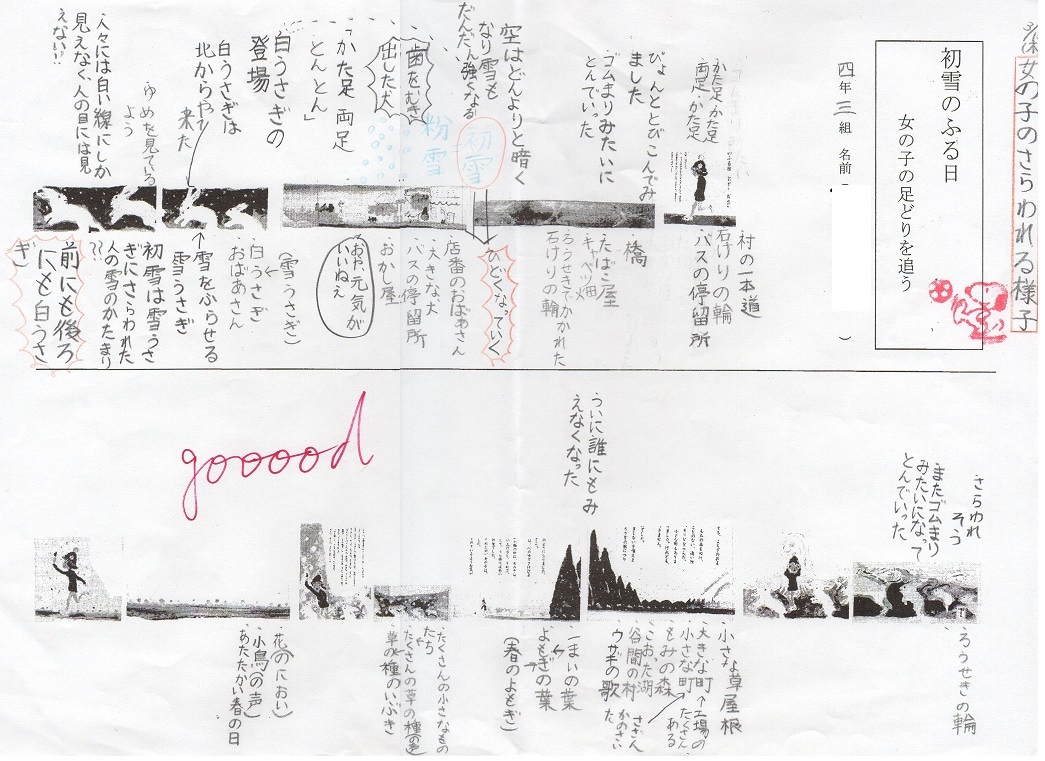 女の子のさらわれる様子
初雪のふる日
女の子の足どりを追う
四年 三組 名前(
)
かた足、かた足
両足、かた足
ぴょんととびこんでみ
ました
ゴムまりみたいに
とんでいった
空はどんよりと暗く
なり雪も
だんだん強くなる
歯をむき
出した犬
初雪
粉雪
「かた足 両足
とんとん」
白うさぎの
登場
白うさぎは
北からやって
来た
ゆめを見ている
よう
人々には白い線にしか
見えなく、人の目には見
えない!!
村の一本道
石けりの輪
バスの停留所
橋
たばこ屋
キャベツ畑
ろうせきでかかれた
石けりの輪
ひどくなっていく
店番のおばあさん
大きな犬
バスの停留所
おかし屋
おや、元気が
いいねえ
(雪うさぎ)
白うさぎ
おばあさん
雪をふらせる
雪うさぎ
初雪は雪うさ
ぎにさらわれた
人の雪のかたまり
??
前にも後ろ
にも白うさ
ぎ
さらわれ
そう
またゴムまり
みたいになって
とんでいった
ついに誰にもみ
えなくなった
gooood
ろうせきの輪
小さな草屋根
大きな町←工場の
小さな町 たくさん
ある
もみの森
こおった湖
谷間の村
ウサギの歌
一まいの葉
よもぎの葉
(春のよもぎ)
たくさんの小さなもの
たち
たくさんの草の種
草の種のいぶき
花(のにおい)
小鳥(の声)
あたたかい春の日